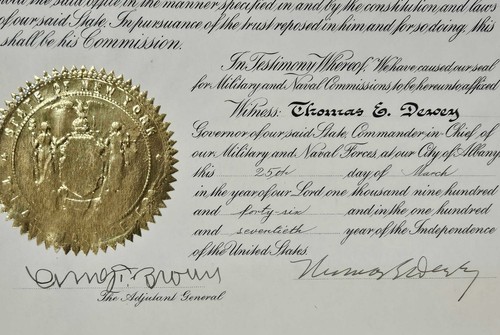 the said office in the manner specified in and by the constitution and laws
of our said State. In pursuance of the trust reposed in him and for so doing, this
shall be his Commission.
In Testimony Whereof, We have caused our seal
for Military and Naval Commissions to be hereunto affixed
Witness: Thomas E. Dewey
Governor of our said State, Commander-in-Chief of
our Military and Naval Forces, at our City of Albany
this 25th day of March
in the year of our Lord, one thousand, nine hundred
and forty-six and in the one hundred
and seventieth year of the Independence
of the United States.
STATE OF NEW YORK
Brown
Thomas E. Dewey
The Adjutant General